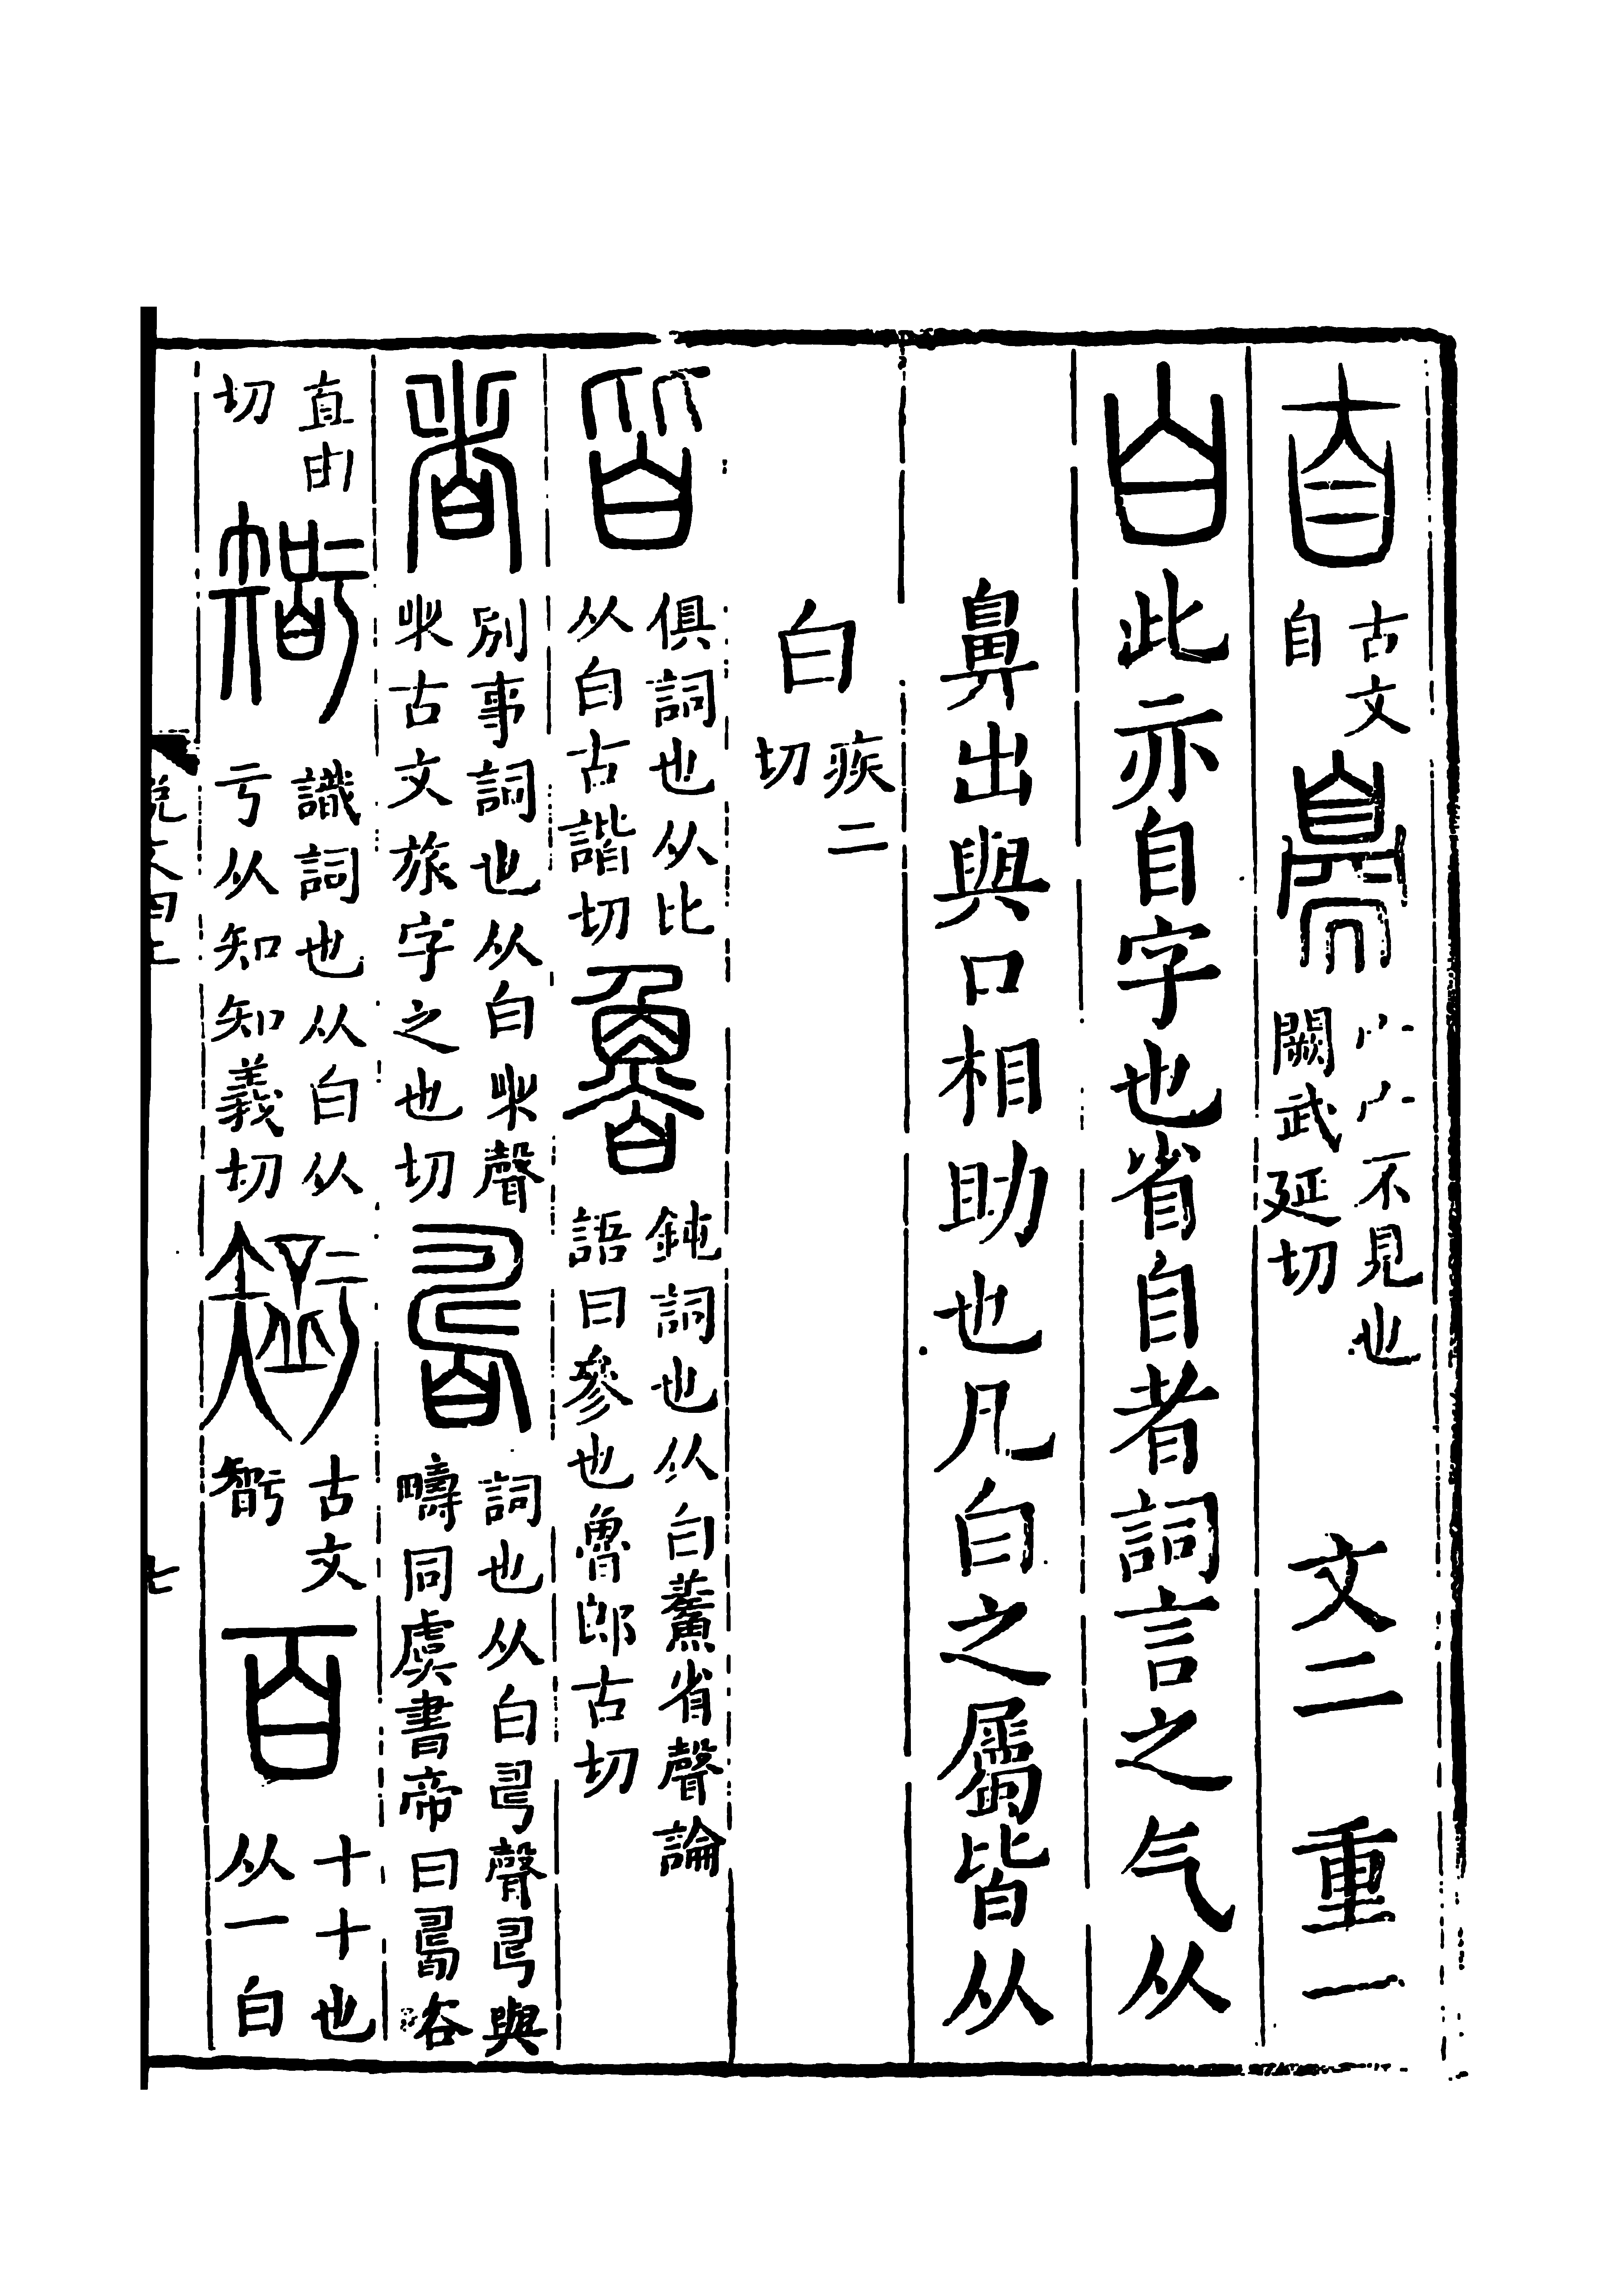 𦣹古文自𦤝宀宀不見也闕武延切　文二　重一
白此亦自字也省自者詞言之气从
鼻出與口相助也凡白之屬皆从
白疾二切
皆俱詞也从比从白古諧切魯鈍詞也从白鮺省聲論語曰參也魯郎古切
者別事詞也从白𣥐聲𣥐古文旅字之也切𠷎詞也从白𠃬聲𠃬與疇同虞書帝曰𠷎咨
直由切𥏼識詞也从白从亏从知知義切𥏼古文𥏼百十十也从一白
說文四上　七